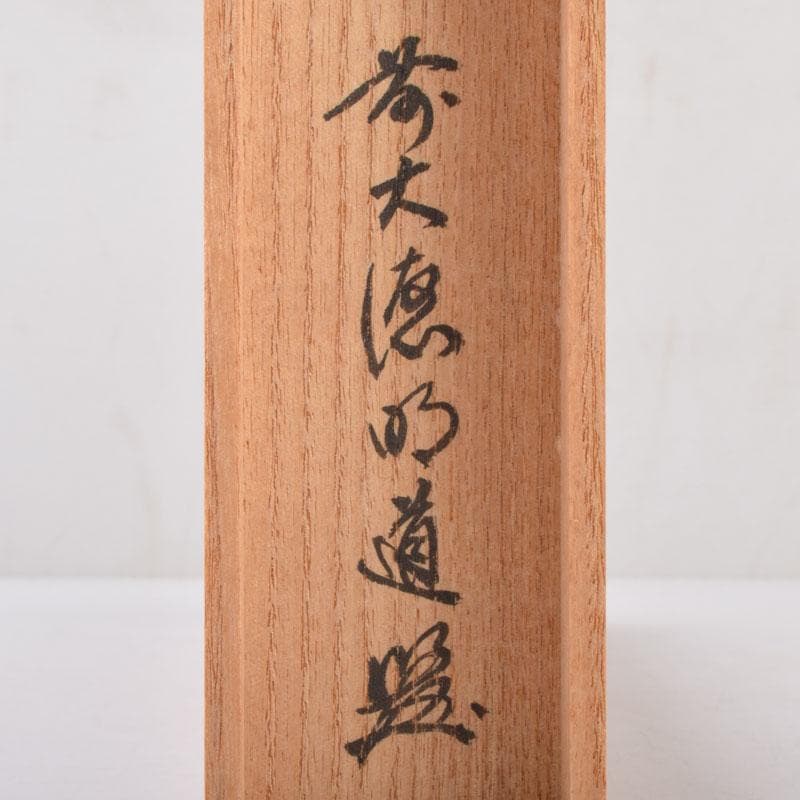 前大徳明道題